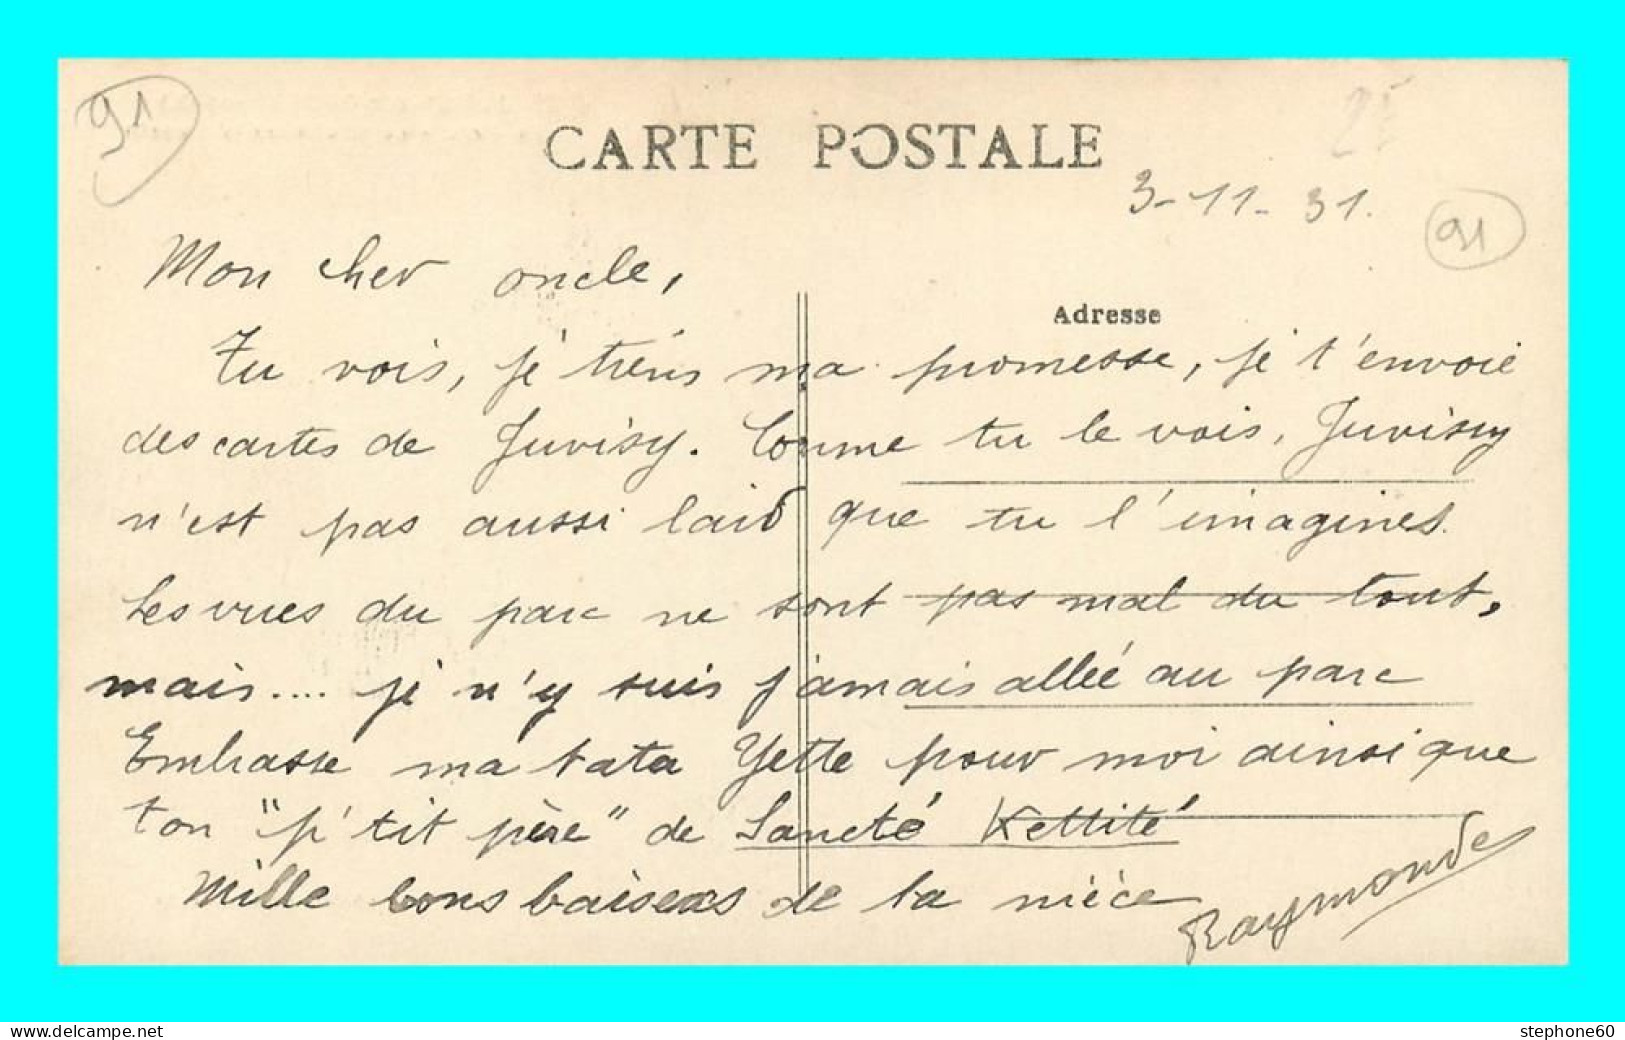 91
CARTE POSTALE
3-11-31.
91
Mon cher oncle,
Adresse
Tu vois, je tiens ma promesse, je t'envoie
des cartes de Juvisy. Comme tu le vois, Juvisy
n'est pas aussi laid que tu l'imagines.
Les vues du parc ne sont pas mal du tout,
mais.... je n'y suis jamais allée au parc
Embrasse ma tata Yette pour moi ainsi que
ton "p'tit père" de Sancté Kettité
Mille bons baisers de ta nièce
Raymonde
www.delcampe.net
stephone60